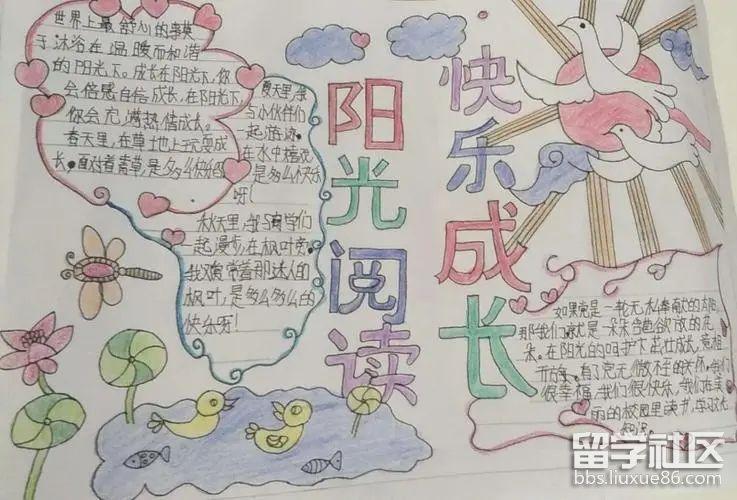 世界上最舒心的事莫
于沐浴在温暖而和谐
的阳光下。成长在阳光下,你
会倍感自信成长。在阳光下,
你会充满热情成长。
春天里,在草地上玩耍成
长。自对着青草是多么快
呀!
夏天里,我
与小伙伴们
一起游泳。
在水中嬉戏
是多么快乐
秋天里,我与同学们
一起漫步,在枫叶旁。
我观赏着那迷人的
枫叶,是多么多么的
快乐呀!
阳光阅读
快乐成长
如果党是一轮无私奉献的太阳
那我们就是一朵朵含苞欲放的花
朵。在阳光的呵护下茁壮成长,竞相
开放。有了党无微不至的关怀,我们
很幸福,我们很快乐,我们在美
丽的校园里读书,学习
知识。
留学社区
bbs.liuxue86.com